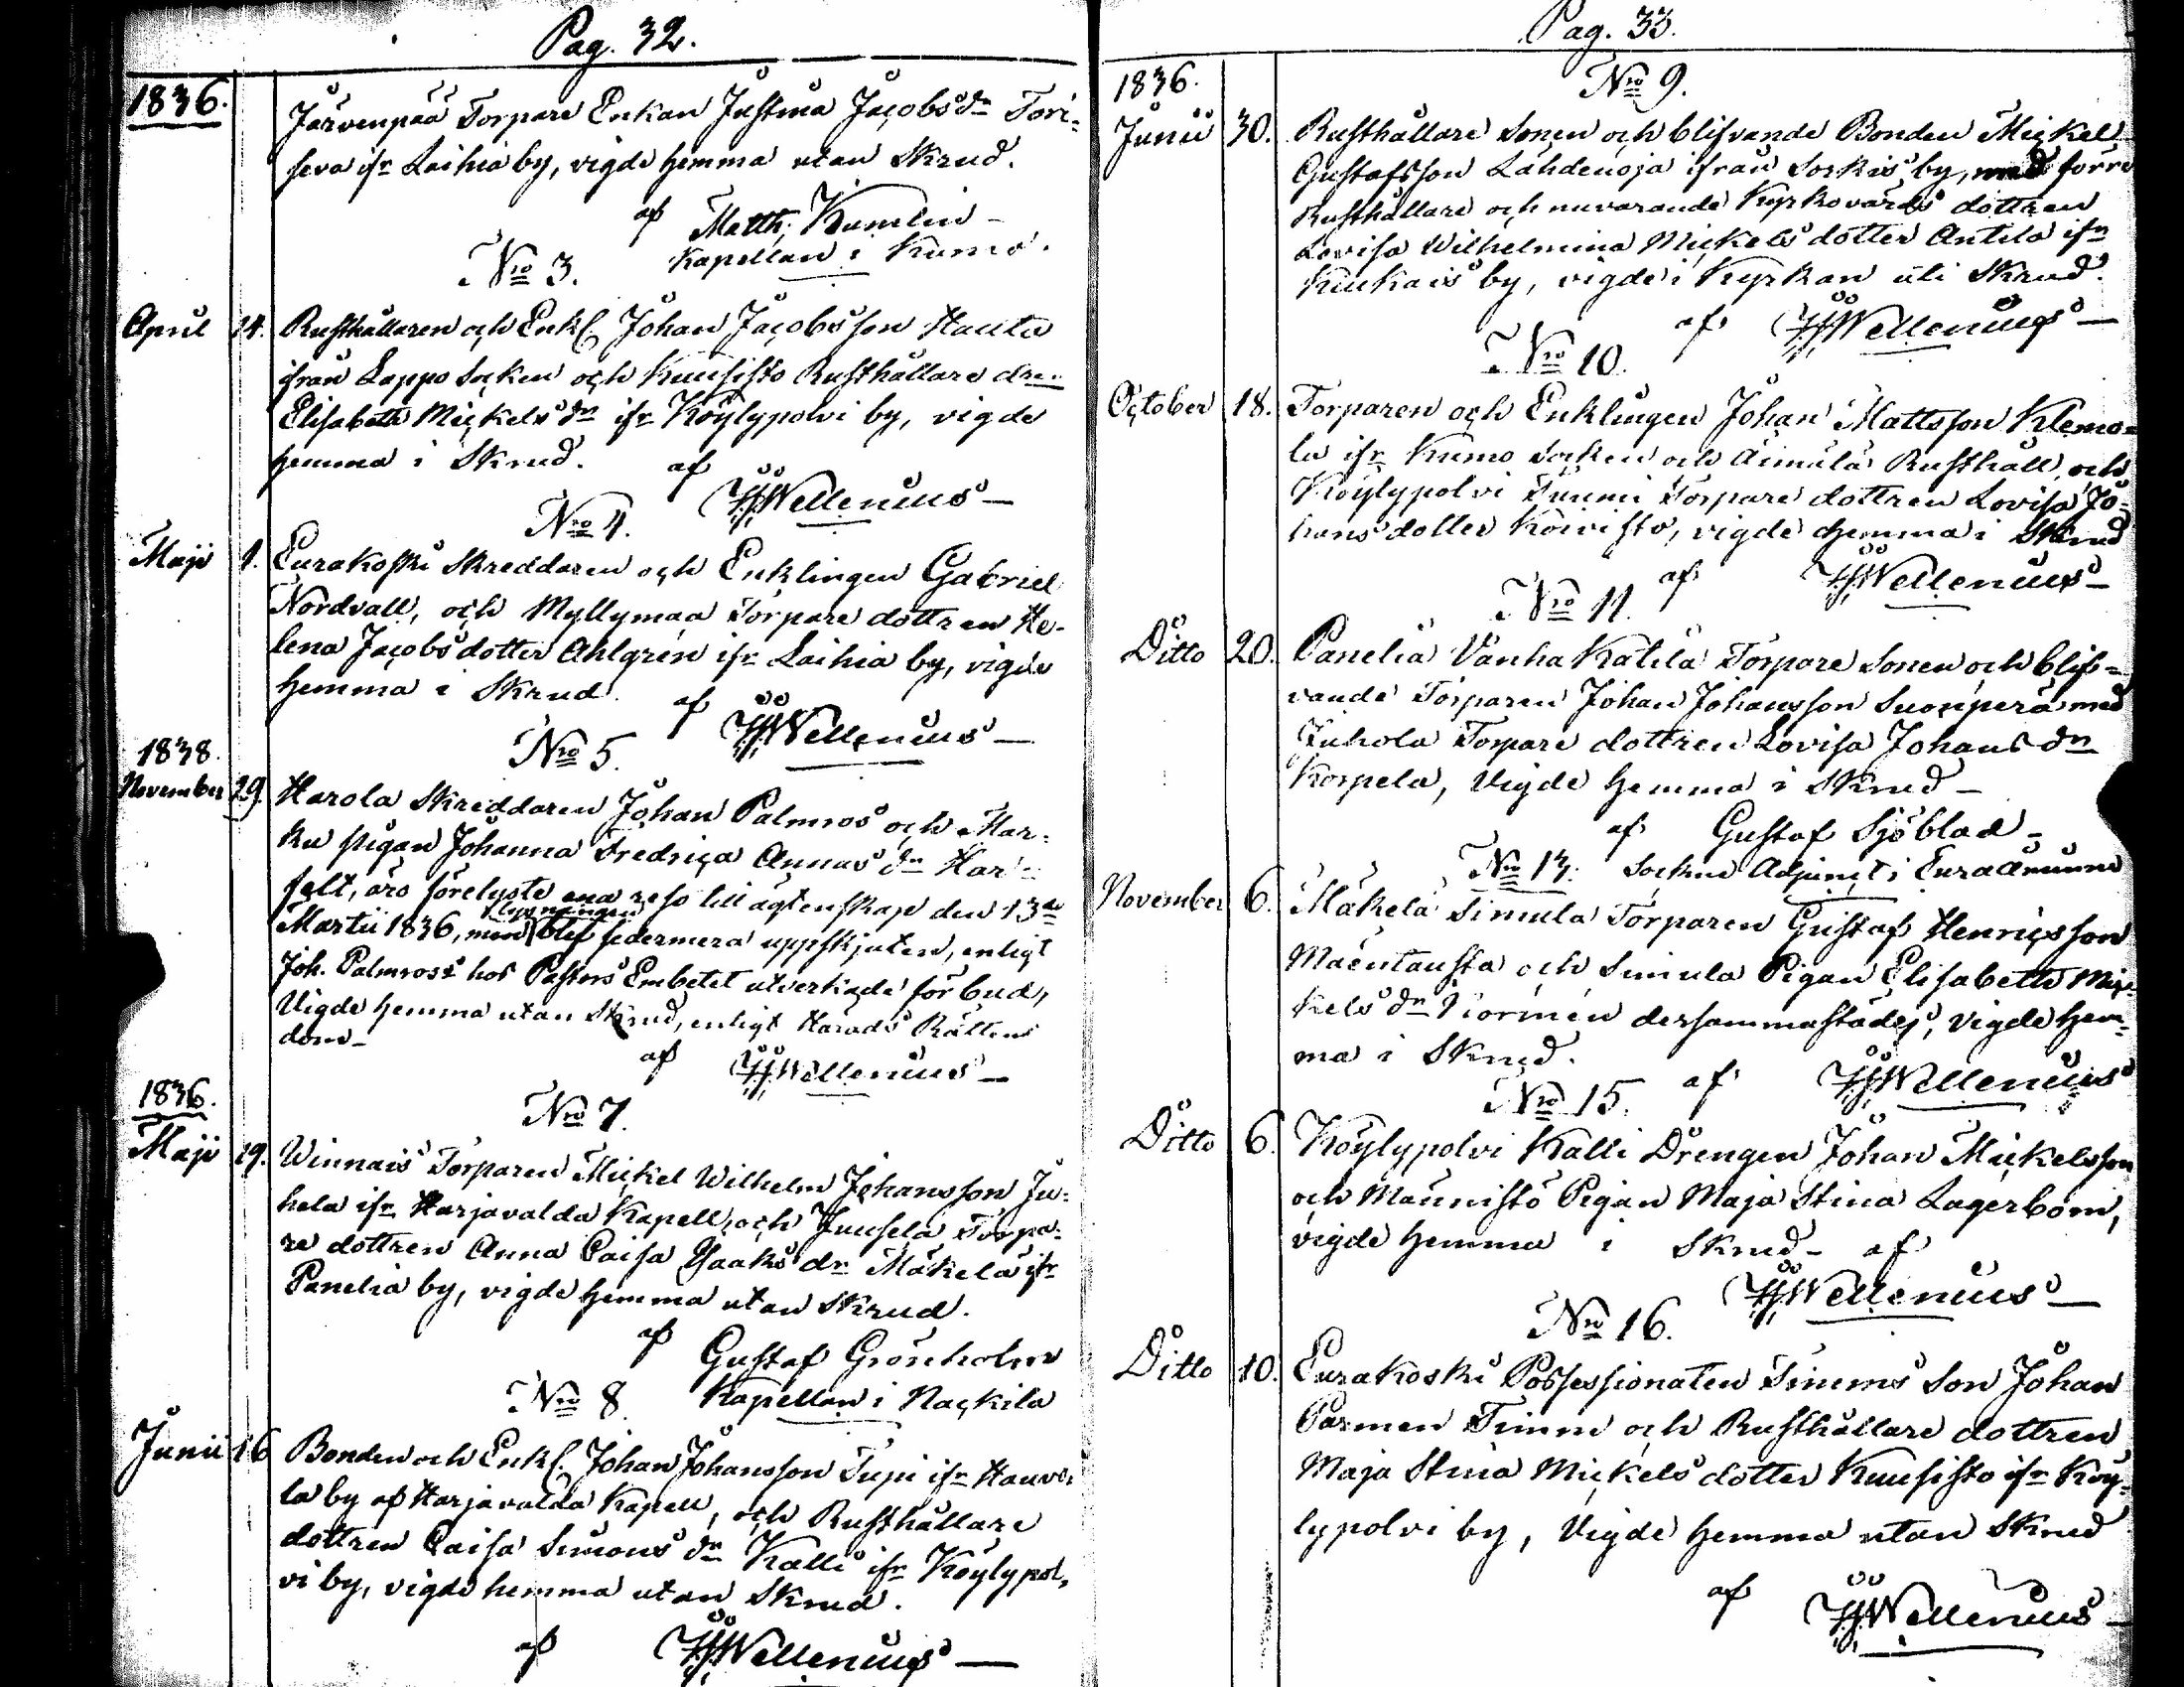 Pag. 32.
1836.
Järvenpää Torpare Enkan Justina Jacobsdr Tori-
seva ifr Laihia by, vigde hemma utan Skrud.
af Matth. Kumlin
Kapellan i Kumo.
No 3.
April 14. Rusthållaren och Enkl. Johan Jacobsson Hauta
ifrån Lappo Socken och Kuusisto Rusthållare dr
Elisabeth Mickelsdr ifr Köylypolvi by, vigde
hemma i Skrud. af
Wellenius
No 4.
Maji 1. Eurakoski Skreddaren och Enklingen Gabriel
Nordvall, och Myllymaa Torpare dottren He-
lena Jacobsdotter Ahlgren ifr Laihia by, vigde
hemma i Skrud. af
Wellenius
No 5.
1838.
November 29. Harola Skreddaren Johan Palmros och Har-
ku pigan Johanna Fredrica Annasdr Har-
felt, äro förelyste ena reso till ägtenskap den 13de
Martii 1836, men lysningen blef sedermera uppskjuten, enligt
Joh. Palmross hos Pastors Embetet utverkade förbud,
Vigde hemma utan Skrud, enligt Härads Rättens
dom
af Wellenius
No 7.
1836.
Maji 19. Winnais Torparen Mickel Wilhelm Johansson Ju-
hela ifr Harjavalda Kapell, och Juusela Torpa-
re dottren Anna Caisa Isaaksdr Mäkelä ifr
Panelia by, vigde hemma utan Skrud.
af Gustaf Grönholm
Kapellan i Nackila
No 8.
Junii 16 Bonden och Enkl. Johan Johansson Tupi ifr Hauvo-
la by af Harjavalda Kapell, och Rusthållare
dottren Caisa Simonsdr Kalli ifr Köylypol-
vi by, vigde hemma utan Skrud.
af Wellenius
Pag. 33.
1836.
No 9.
Junii 30. Rusthållare Sonen och blifvande Bonden Mickel
Gustafsson Lähdenoja ifrån Sorkis by, med förre
Rusthållare och nuvarande Kyrkovärds dottren
Lovisa Wilhelmina Mickelsdotter Antila ifr
Kiukais by, vigde i Kyrkan uti Skrud.
af Wellenius
No 10.
October 18. Torparen och Enklingen Johan Mattsson Klemo-
la ifr Kumo Socken och Äimälä Rusthåll, och
Köylypolvi Tuumi Torpare dottren Lovisa Jo-
hansdotter Koivisto, vigde hemma i Skrud
af Wellenius
No 11.
Ditto 20. Panelia Vanha Katila Torpare Sonen och blif-
vande Torparen Johan Johansson Suonperä med
Juhola Torpare dottren Lovisa Johansdr
Korpela, Vigde hemma i Skrud
af Gustaf Sjöblad
Sockne Adjunct i Euraåminne
No 13.
November 6. Mäkelä Simula Torparen Gustaf Henricsson
Mäentausta och Simula Pigan Elisabeth Mic-
kelsdr Norrmén dersammastädes, Vigde hem-
ma i Skrud.
af Wellenius
No 15.
Ditto 6. Köylypolvi Kalli Drengen Johan Mickelsson
och Männistö Pigan Maja Stina Lagerbom,
vigde hemma i Skrud af
Wellenius
No 16.
Ditto 10. Eurakoski Possessionaten Timms Son Johan
Parmen Timm och Rusthållare dottren
Maja Stina Mickelsdotter Kuusisto ifr Köy-
lypolvi by, Vigde hemma utan Skrud
af Wellenius